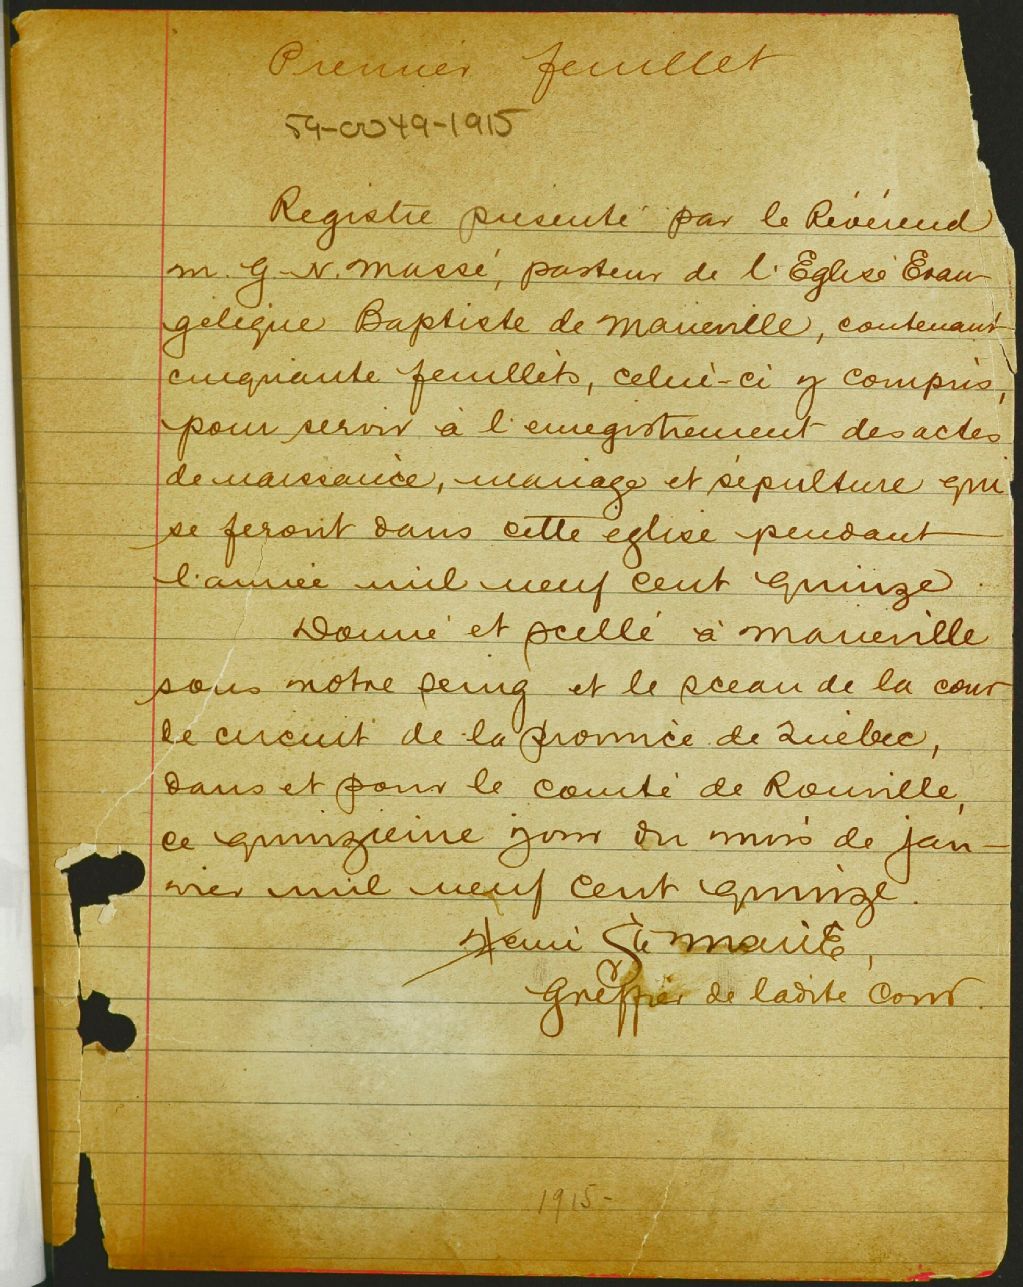 Premier feuillet
59-0049-1915
Registre présenté par le Révérend
M. G. N. Massé, pasteur de l'Eglise Evan-
gélique Baptiste de Marieville, contenant
cinquante feuillets, celui-ci y compris,
pour servir à l'enregistrement des actes
de naissance, mariage et sépulture qui
se feront dans cette eglise pendant
l'année mil neuf cent quinze
Donné et scellé à Marieville
sous notre seing et le sceau de la cour
de circuit de la province de Québec,
dans et pour le comté de Rouville,
ce quinzieme jour du mois de jan-
vier mil neuf cent quinze.
Henri Ste Marie,
Greffier de ladite Cour.
1915-